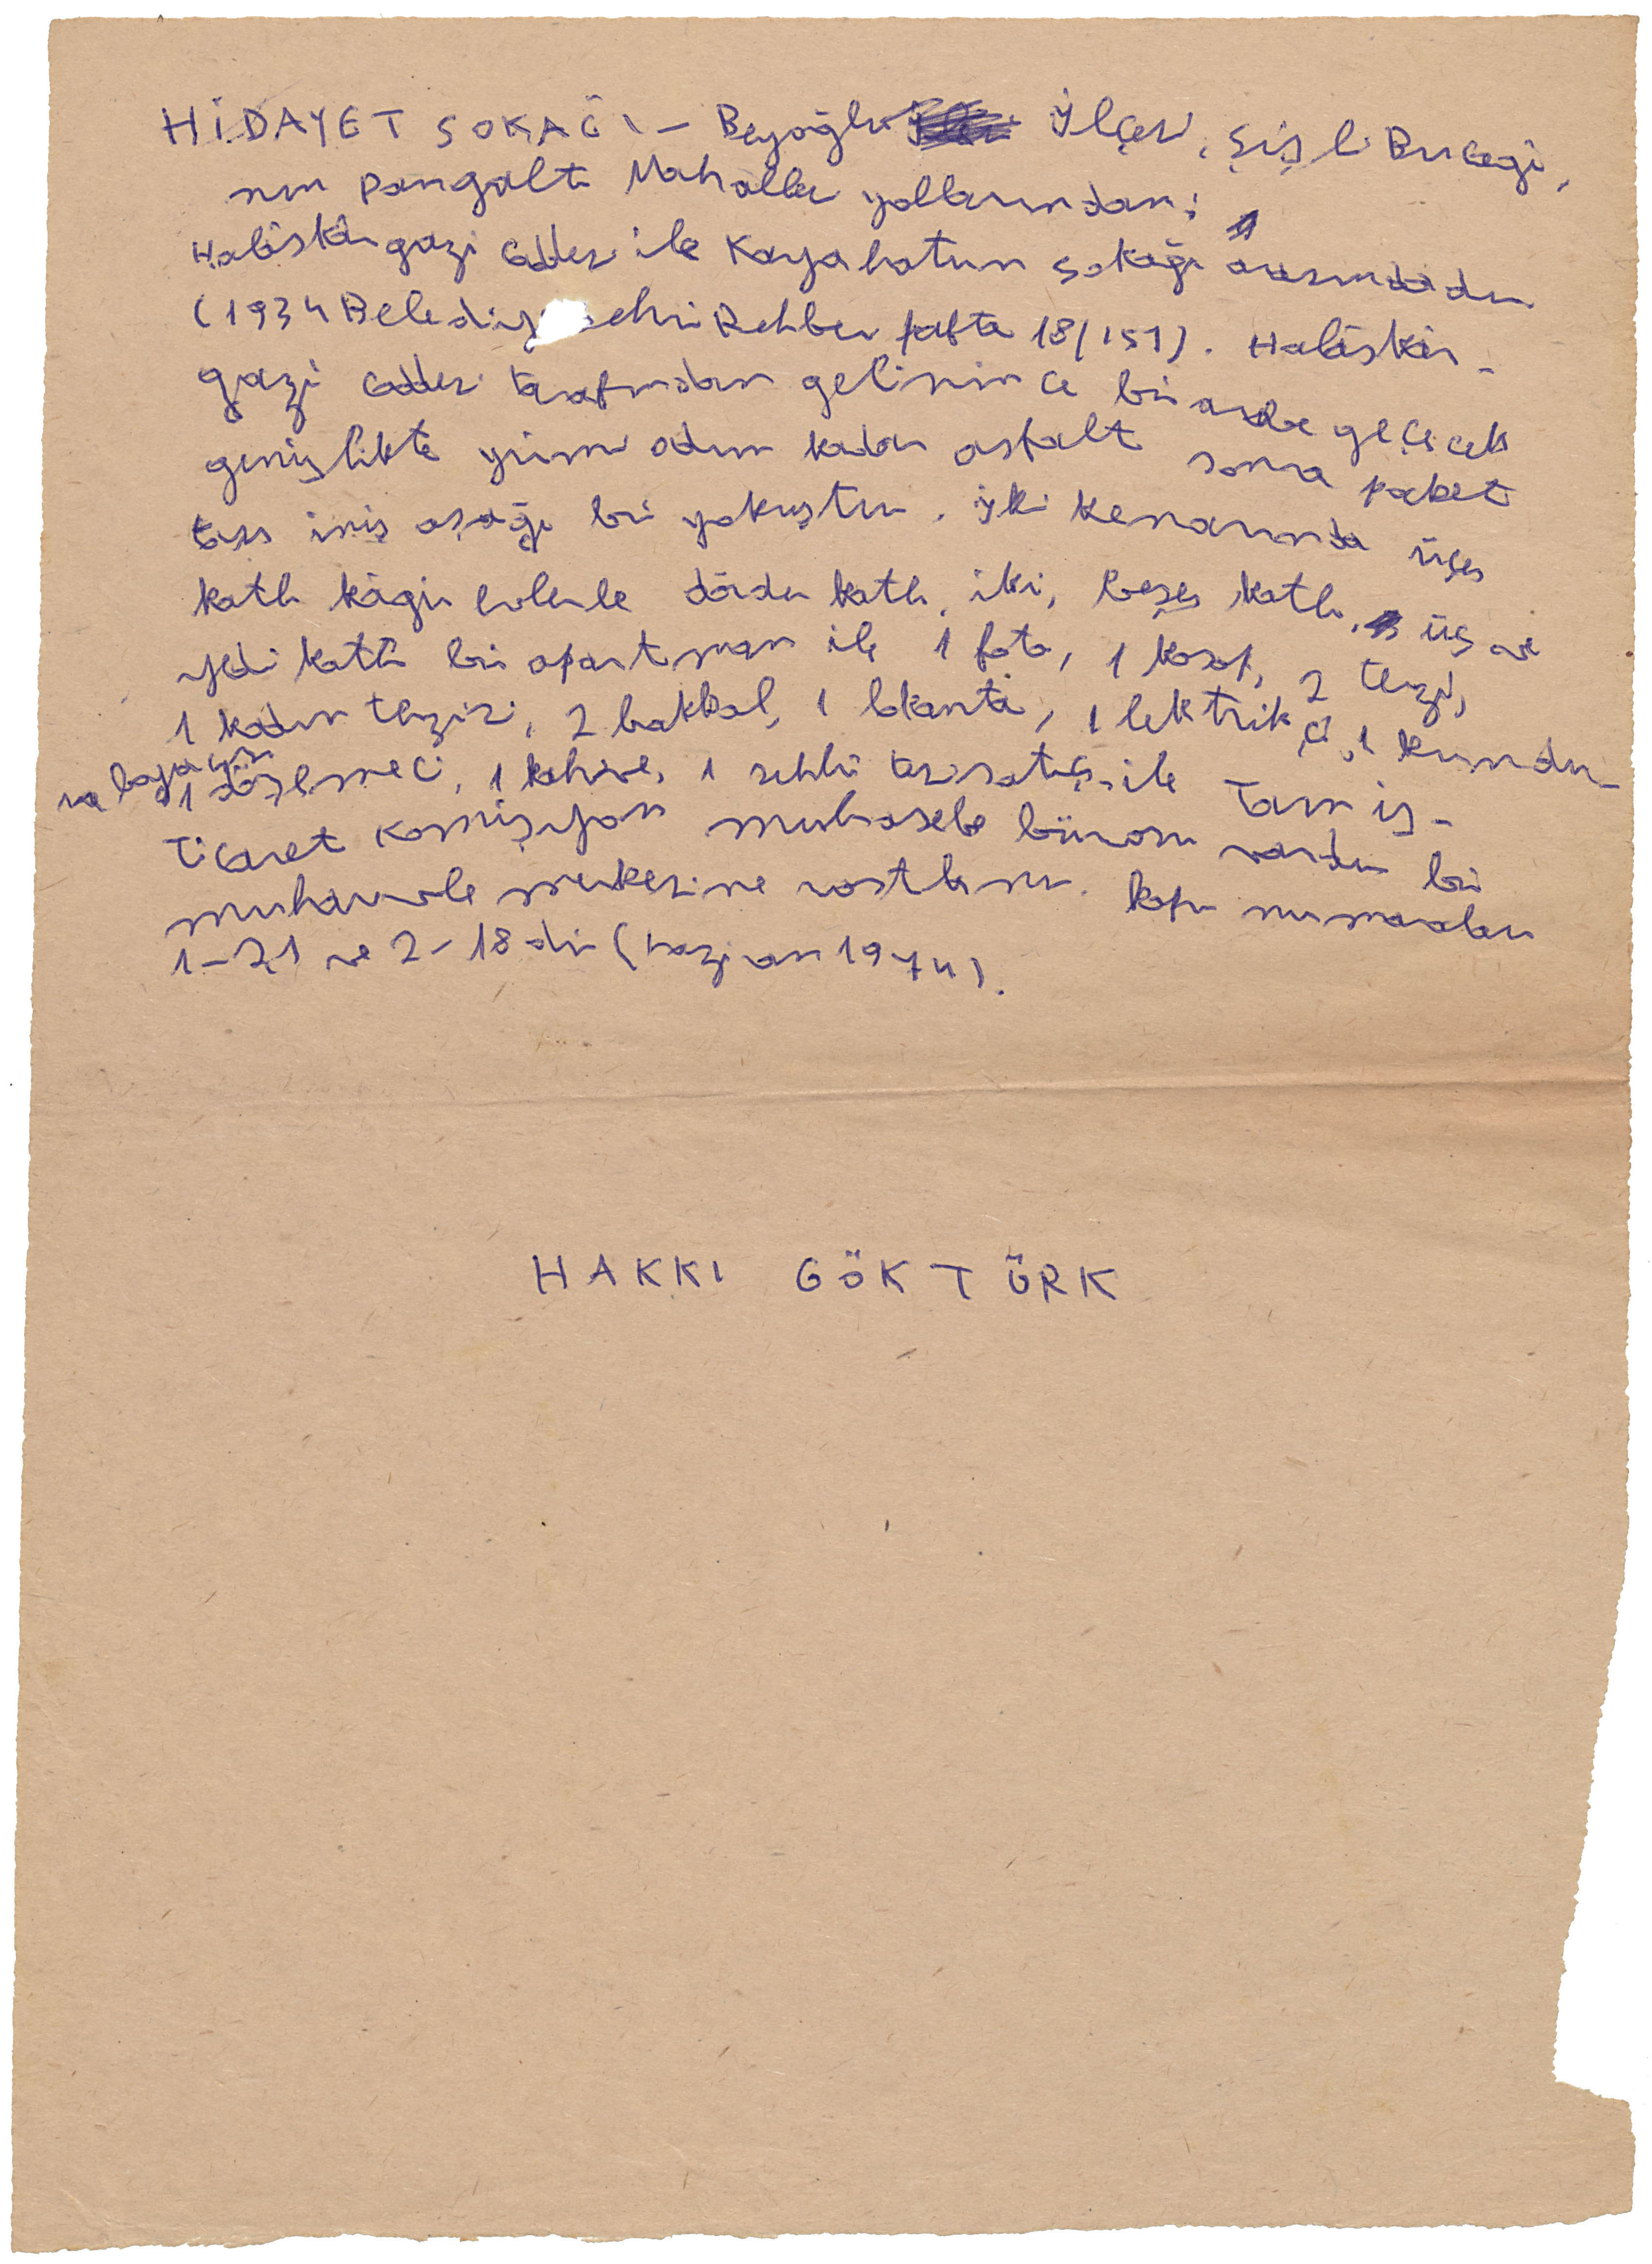 HİDAYET SOKAĞI – Beyoğlu İlçesi, Şişli Bucağı,
nın Pangaltı Mahallesi yollarından;
Halâskârgazi Caddesi ile Kayahatun sokağı arasındadır
(1934 Belediy ehri Rehberi pafta 18/151). Halâskâr-
gazi Caddesi tarafından gelinince bir araba geçecek
genişlikte yirmi adım kadar asfalt sonra paket
taşı iniş aşağı bir yokuştur. İki kenarında üçer
katlı kâgir evlerle dörder katlı, iki, beşer katlı, üç ve
yedi katlı bir apartıman ile 1 foto, 1 kasap, 2 terzi,
1 kadın terzisi, 2 bakkal, 1 lokanta, 1 lektrikçi, 1 kundu-
ra boyacısı
1 döşemeci, 1 kahve, 1 sıhhi tesisatçı ile Tam iş-
Ticaret Komisyon muhasebe bürosu vardır bir
muhavvile merkezine rastlanır. Kapu numaraları
1–21 ve 2–18 dir (haziran 1974).
HAKKI GÖKTÜRK